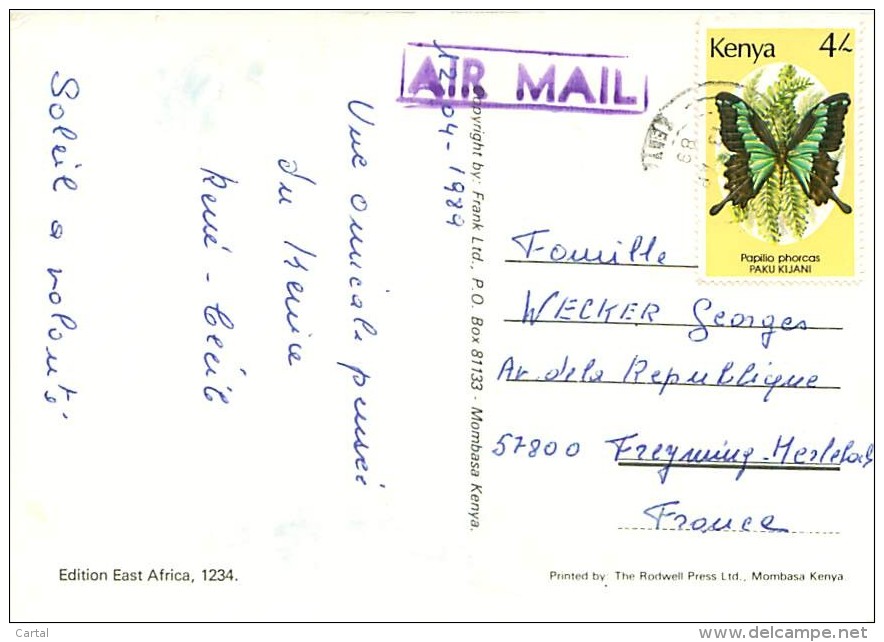 AIR MAIL
Kenya 4/-
Papilio phorcas
PAKU KIJANI
12-04-1989
Une amicale pensée
du Kenia
René - Cécile
Soleil a volonté
Copyright by: Frank Ltd., P.O. Box 81133 - Mombasa Kenya.
Famille
WECKER Georges
Av. de la Republique
57800 Freyming-Merlebach
France
Edition East Africa, 1234.
Printed by: The Rodwell Press Ltd., Mombasa Kenya.
Cartal
delcampe.net